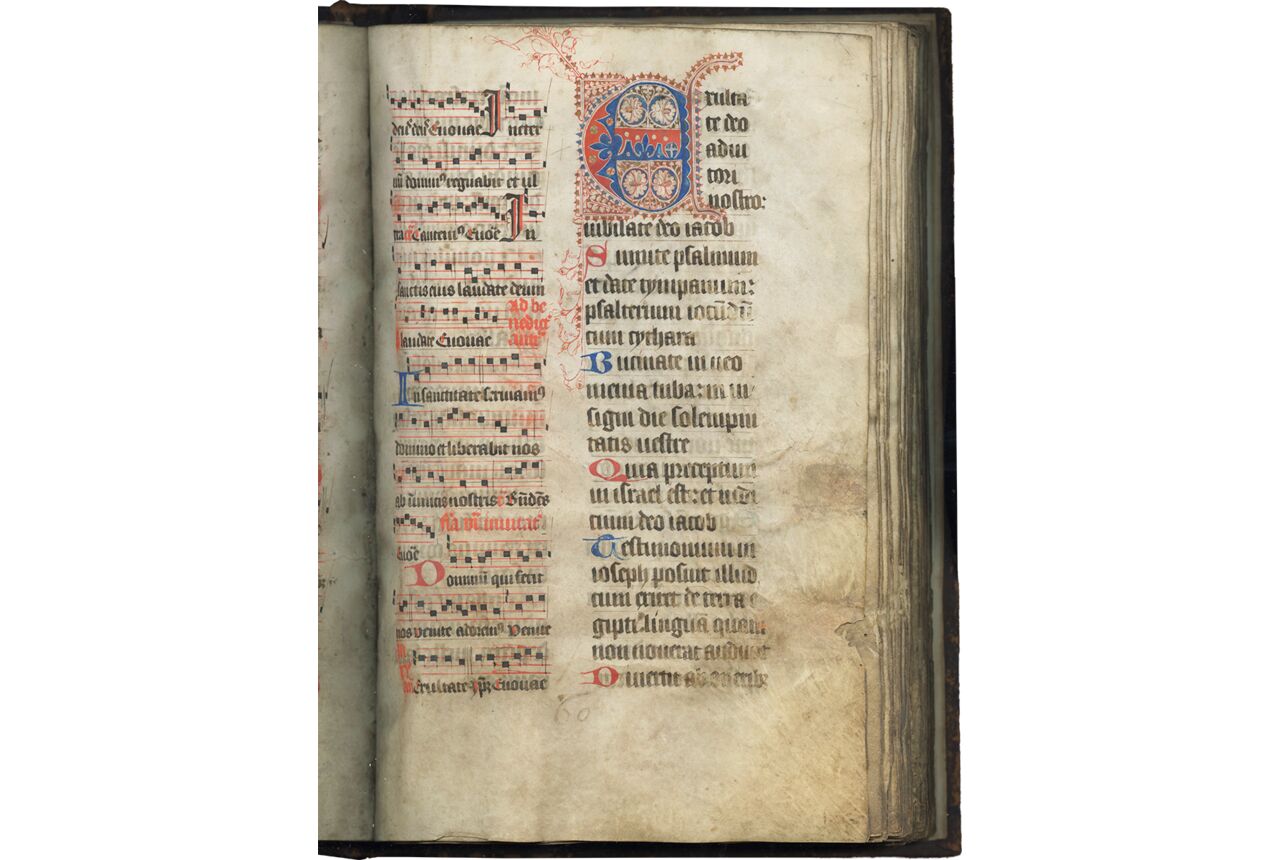 deū. dn̄s. Euouae In eter
nū dominꝰ regnabit et ul
tra Cantemꝰ Euoē In
sanctis eius laudate deum
laudate Euouae ad be
nedic̄
ant̄
In sanctitate seruiamꝰ
domino et liberabit nos
ab inimicis nostris Bn̄dc̄s
fīa. vī. inuitat̄
Euoē
Dominum qui fecit
nos venite adoremꝰ Venite
Exultate Euouae
Exulta
te deo
adiu
tori
nostro:
iubilate deo iacob
Sumite psalmum
et date tympanum:
psalterium iocūdū
cum cythara
Bucinate in neo
menia tuba: in in
signi die solempni
tatis uestre
Quia preceptum
in israel est: et iudi
cium deo iacob
Testimonium in
ioseph posuit illud
cum exiret de terra e
gipti linguā quam
non nouerat audiuit
Diuertit ab oneribꝰ
60